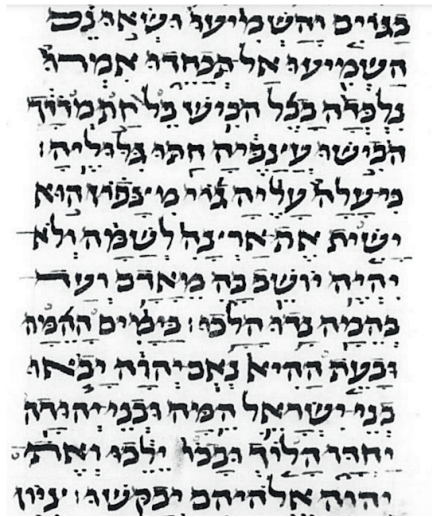 בגוים והשמיעו ושאו נס
השמיעו אל תכחדו אמרו
נלכדה בבל הביש בל חת
הבישו עצביה חתו גלוליה׃
כי עלה עליה גוי מצפון הוא
ישית את ארצה לשמה ולא
יהיה יושב בה מאדם ועד
בהמה נדו הלכו׃ בימים ההמה
ובעת ההיא נאם יהוה יבאו
בני ישראל המה ובני יהודה
יחדו הלוך ובכו ילכו ואת
יהוה אלהיהם יבקשו׃ ציון